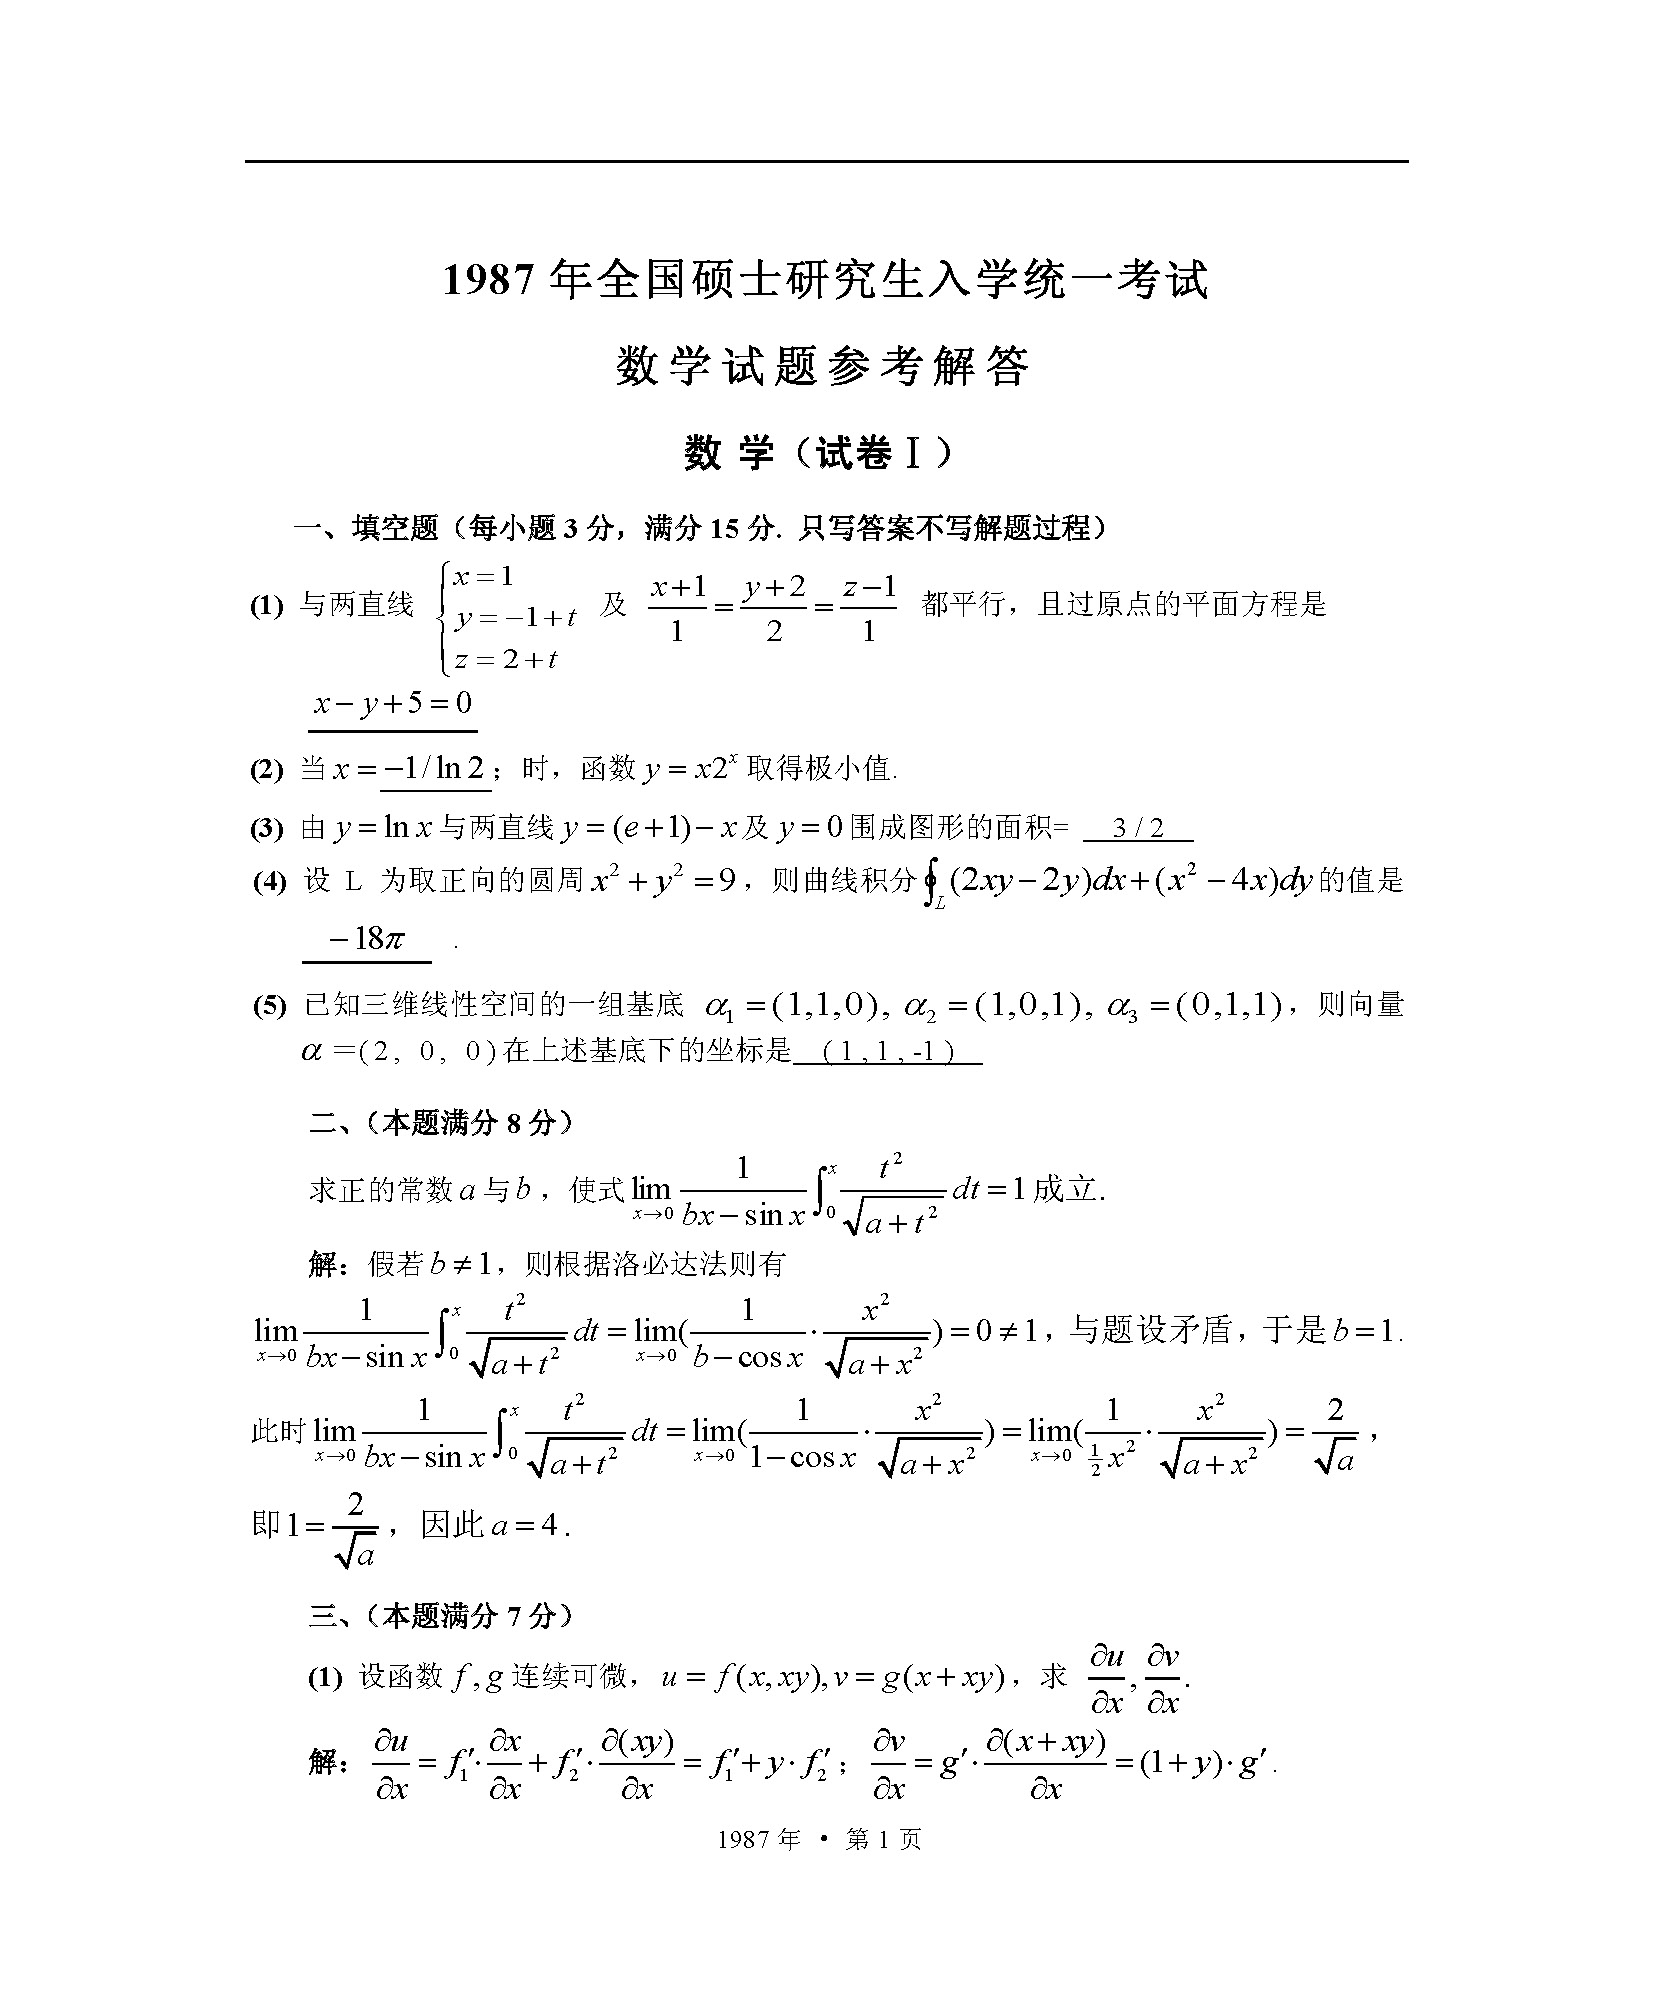 1987 年全国硕士研究生入学统一考试
数 学 试 题 参 考 解 答
数 学（试卷Ⅰ）
一、填空题（每小题 3 分，满分 15 分. 只写答案不写解题过程）
(1) 与两直线 $\begin{cases} x=1 \\ y=-1+t \\ z=2+t \end{cases}$ 及 $\frac{x+1}{1}=\frac{y+2}{2}=\frac{z-1}{1}$ 都平行，且过原点的平面方程是
$x-y+5=0$
(2) 当 $x=-1/\ln 2$；时，函数 $y=x2^x$ 取得极小值.
(3) 由 $y=\ln x$ 与两直线 $y=(e+1)-x$ 及 $y=0$ 围成图形的面积= 3 / 2
(4) 设 L 为取正向的圆周 $x^2+y^2=9$，则曲线积分 $\oint_L (2xy-2y)dx+(x^2-4x)dy$ 的值是
$-18\pi$ .
(5) 已知三维线性空间的一组基底 $\alpha_1=(1,1,0), \alpha_2=(1,0,1), \alpha_3=(0,1,1)$，则向量
$\alpha$ ＝( 2 , 0 , 0 ) 在上述基底下的坐标是 ( 1 , 1 , -1 )
二、（本题满分 8 分）
求正的常数 $a$ 与 $b$，使式 $\lim_{x\to 0}\frac{1}{bx-\sin x}\int_0^x \frac{t^2}{\sqrt{a+t^2}}dt=1$ 成立.
解：假若 $b\neq 1$，则根据洛必达法则有
$\lim_{x\to 0}\frac{1}{bx-\sin x}\int_0^x \frac{t^2}{\sqrt{a+t^2}}dt=\lim_{x\to 0}(\frac{1}{b-\cos x}\cdot\frac{x^2}{\sqrt{a+x^2}})=0\neq 1$，与题设矛盾，于是 $b=1$.
此时 $\lim_{x\to 0}\frac{1}{bx-\sin x}\int_0^x \frac{t^2}{\sqrt{a+t^2}}dt=\lim_{x\to 0}(\frac{1}{1-\cos x}\cdot\frac{x^2}{\sqrt{a+x^2}})=\lim_{x\to 0}(\frac{1}{\frac{1}{2}x^2}\cdot\frac{x^2}{\sqrt{a+x^2}})=\frac{2}{\sqrt{a}}$，
即 $1=\frac{2}{\sqrt{a}}$，因此 $a=4$.
三、（本题满分 7 分）
(1) 设函数 $f,g$ 连续可微，$u=f(x,xy),v=g(x+xy)$，求 $\frac{\partial u}{\partial x},\frac{\partial v}{\partial x}$.
解：$\frac{\partial u}{\partial x}=f_1'\cdot\frac{\partial x}{\partial x}+f_2'\cdot\frac{\partial (xy)}{\partial x}=f_1'+y\cdot f_2'$；$\frac{\partial v}{\partial x}=g'\cdot\frac{\partial (x+xy)}{\partial x}=(1+y)\cdot g'$.
1987 年 • 第 1 页